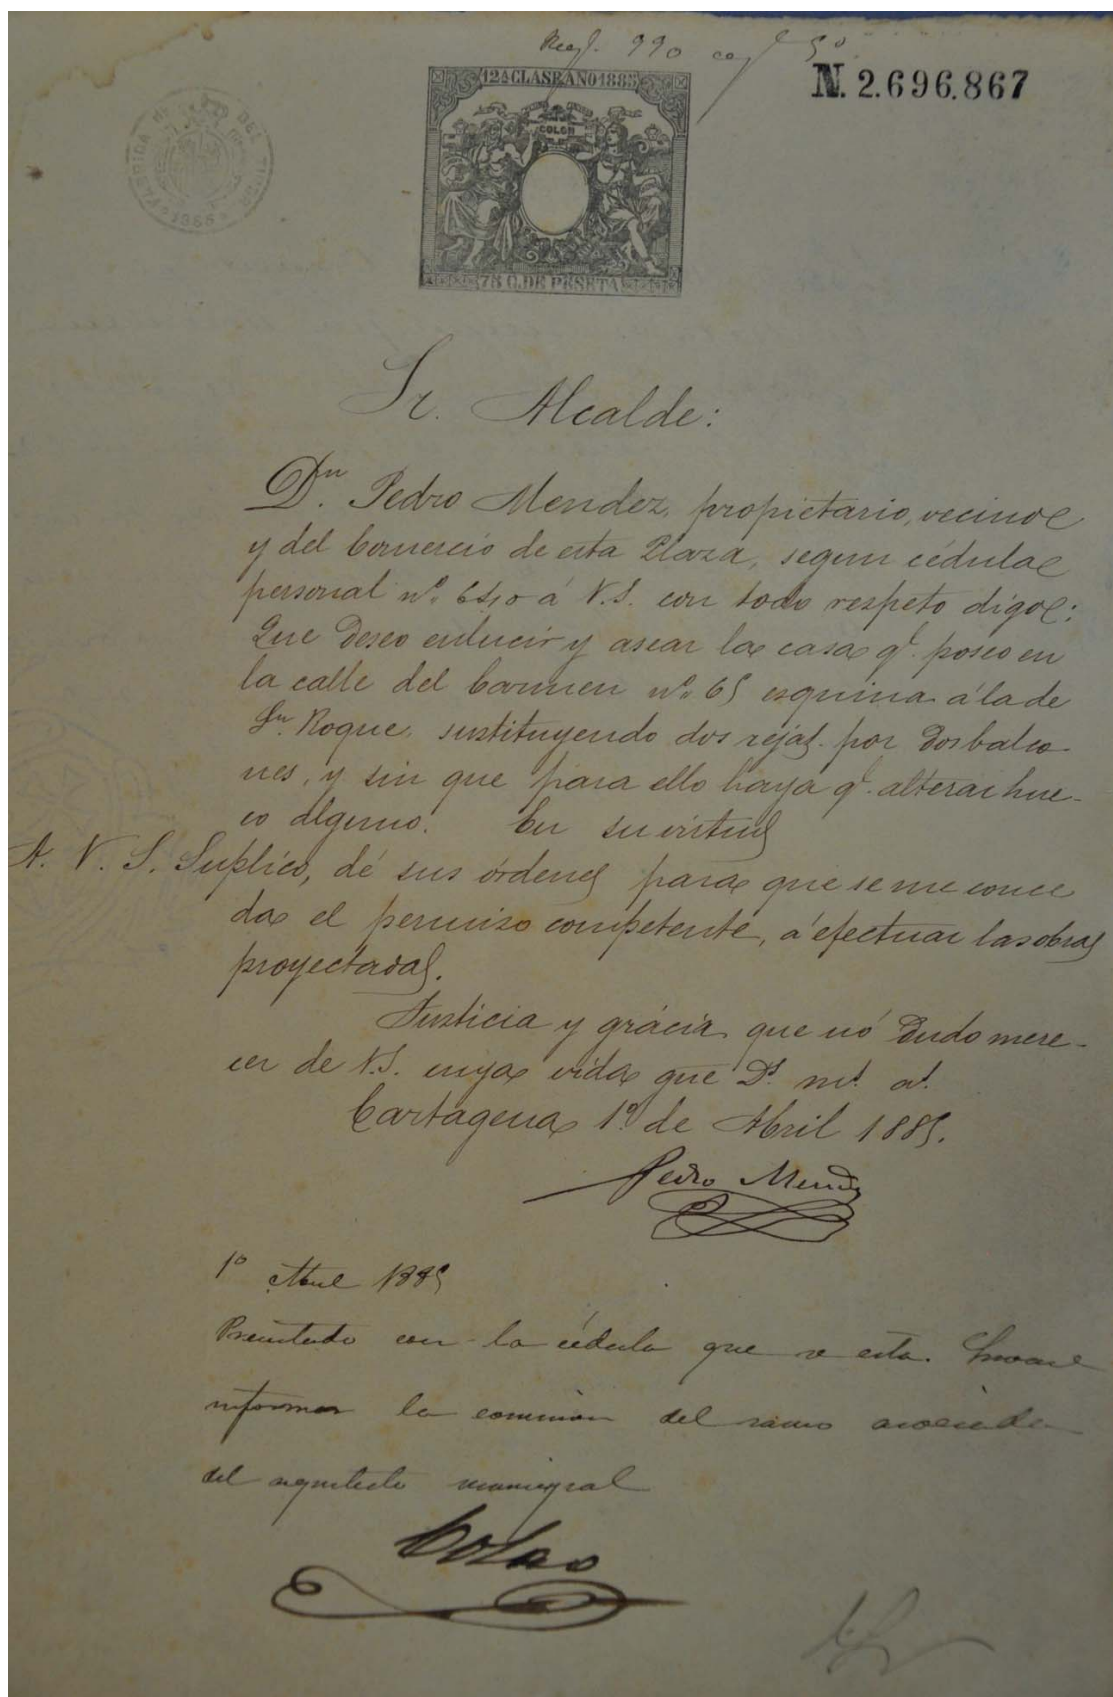 Regl. 990
N. 2.696.867
12ª CLASE AÑO 1885
COLON
75 C. DE PESETA
FABRICA DEL
1885
Sr. Alcalde:
Dn. Pedro Mendez, propietario, vecino
y del Comercio de esta Plaza, segun cédula
personal nº. á V.S. con todo respeto digo:
Que deseo enlucir y asear la casa qe. poseo en
la calle del Carmen nº. 65 esquina á la de
Sn. Roque, sustituyendo dos rejas por dos balco-
nes, y sin que para ello haya qe. alterar hue-
co alguno. En su virtud
A. V. S. Suplico, dé sus órdenes para que se me conce
da el permiso competente, á efectuar las obras
proyectadas.
Justicia y grácia que nó dudo mere-
cer de V.S. cuya vida que Ds. ms. as.
Cartagena 1º. de Abril 1885.
Pedro Mendez
1º Abril 1885
Presentado con la cédula que se cita.
informar la comision del ramo
del arquitecto municipal